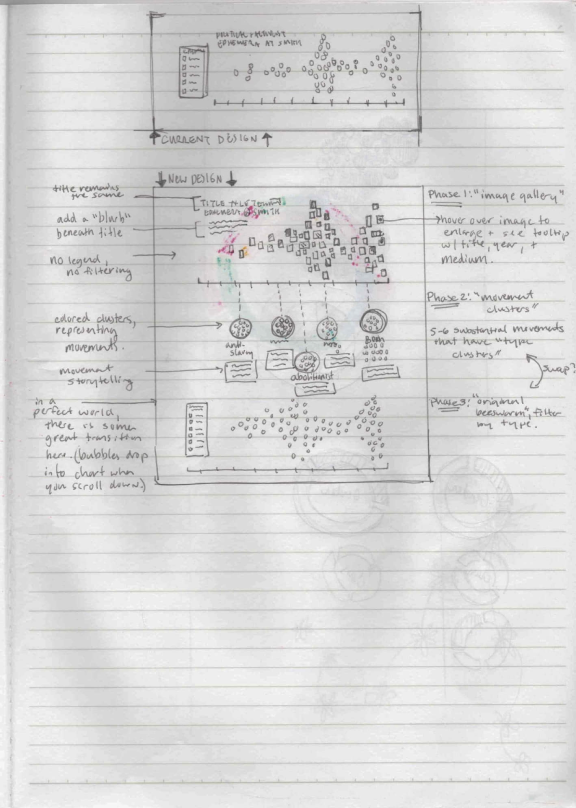 EPHEMERA AT SMITH
CURRENT DESIGN
NEW DESIGN
title remains
the same
add a "blurb"
beneath title
no legend,
no filtering
colored clusters,
representing
movements.
movement
storytelling
in a
perfect world,
there is some
great transition
here. (bubbles drop
into chart when
you scroll down.)
TITLE TITLE
EPHEMERA @ SMITH
anti-
slavery
abolitionist
Phase 1: "image gallery"
hover over image to
enlarge + see tooltip
w/ title, year, +
medium.
Phase 2: "movement
clusters"
5-6 substantial movements
that have "type
clusters"
swap?
Phase 3: "original
beeswarm", filter
by type.